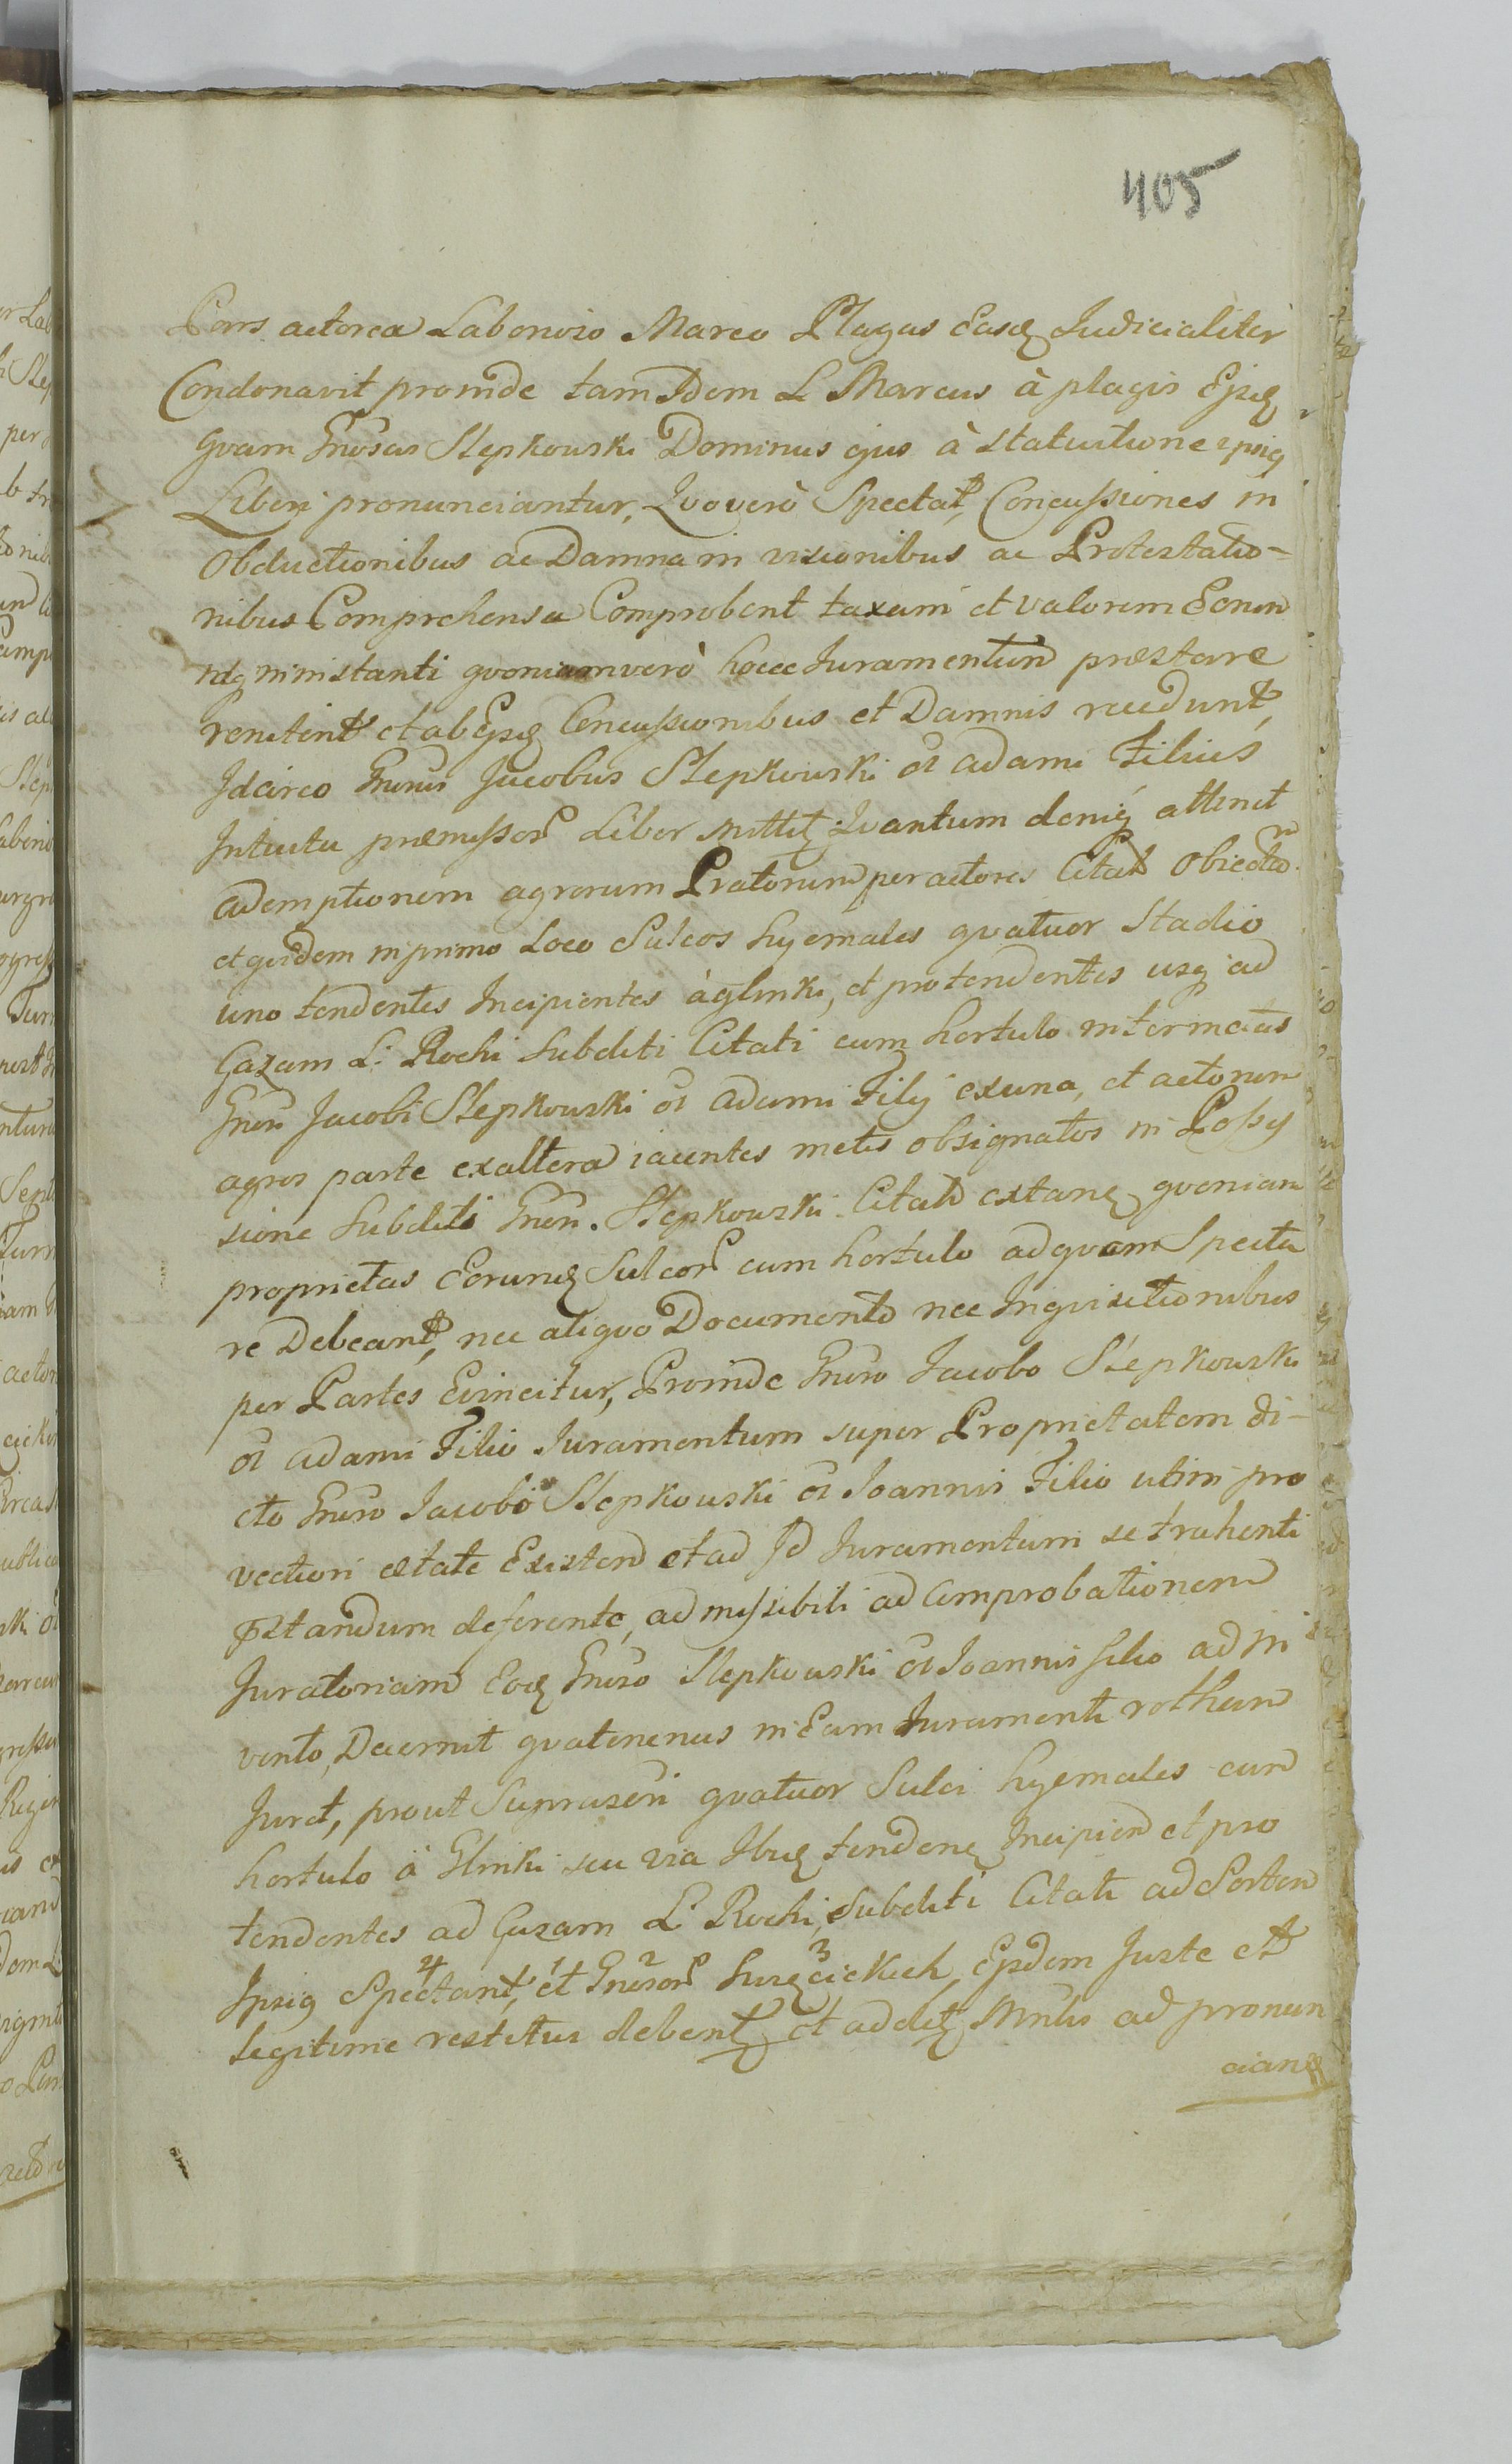 405
Pars actorea Laborioso Marco Plagas Easq Judicialiter
Condonavit proinde tam Idem L Marcus à plagis Ejsq
qvam Gnosus Slepkowski Dominus ejus à statuitione ipsiq
Liberi pronunciantur, Qvo verò Spectat, Concussiones in
Obductionibus ac Damna in visionibus ac Protestatio-
nibus Comprehensa Comprobent taxam et valorem Eorum
ndq ministanti qvoniam verò hocce Juramentum præstare
renitent et ab Ejsq Concussionibus et Damnis recedunt,
Idcirco Gnrus Jacobus Slepkowski oı adami Filius
Intuitu præmissor Liber mittiq Qvantum deniq attinet
ademptionem agrorum Pratorum per actores Citat Obiectam
et qvidem in primo Loco Sulcos hyemales qvatuor Stadio
uno tendentes Incipientes à glinki, et protendentes usq ad
Gazam L. Rochi Subditi Citati cum hortulo inter metas
Gnri Jacobi Slepkowski oı Adami Filij ex una, et actorum
agros parte ex altera iacentes metis obsignatos in Posses
sione Subditi Gnri. Slepkowski Citati extanq qvoniam
proprietas Eorunq Sulcor cum hortulo ad qvem Specta
re Debeant, nec aliqvo Documento nec Inqvisitionibus
per Partes Evincitur, Proinde Gnro Jacobo Slepkowski
oı adami Filio Juramentum super Proprietatem di-
cto Gnro Jacobo Slepkowski oı Joannis Filio uti in pro
vectiori ætate Existend et ad Id Juramentum se trahenti
pstandum deferente, admissibili ad Comprobationem
Juratoriam Eoq Gnro Slepkowski oı Joannis filio ad in
vento, Decernit qvatenenus in Eam Juramenti rotham
Juret, prout Suprascri qvatuor Sulci hyemales cum
hortulo à Glinki seu via Ibuq tendenq Incipiend et pro
tendentes ad Gazam L. Rochi, Subditi Citati ad Sortem
4 1 2 3
Ipsiq Spectant, et Gnrosor Suręcickich, Ejsdem Juste et
legitime restitui debent, et addiq Mnlis ad pronun
cianq